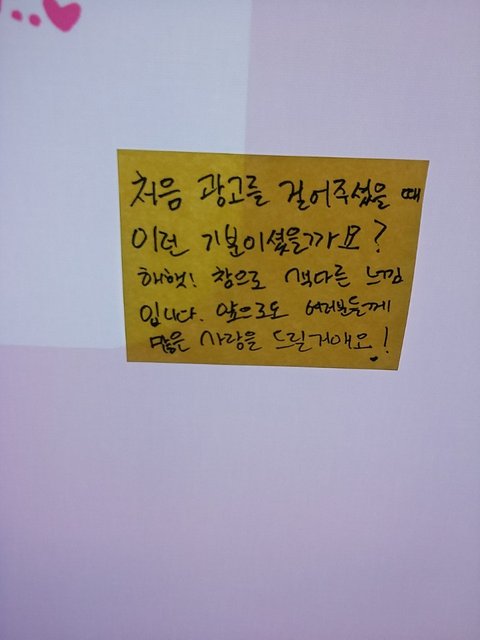 처음 광고를 걸어주셨을 때
이런 기분이셨을까요?
해햇! 참으로 색다른 느낌
입니다. 앞으로도 여러분들께
많은 사랑을 드릴거애요!